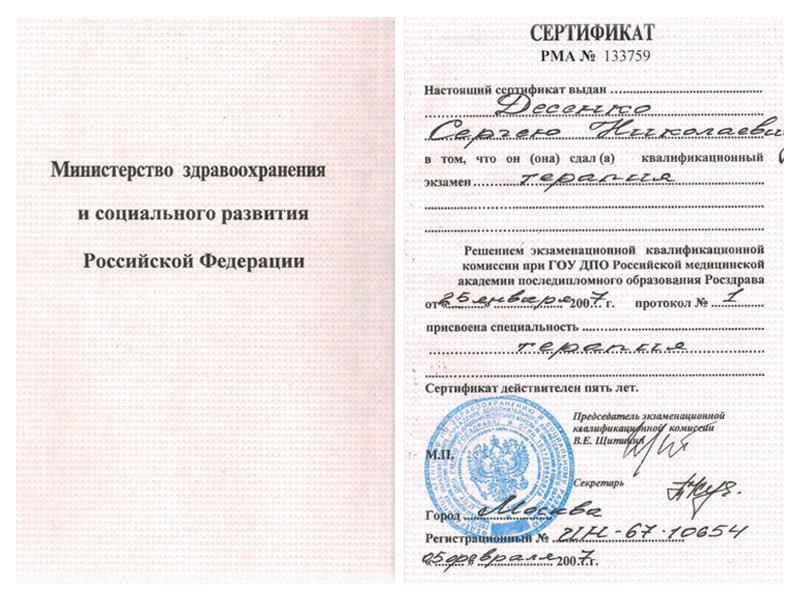 Министерство здравоохранения
и социального развития
Российской Федерации
СЕРТИФИКАТ
РМА № 133759
Настоящий сертификат выдан
Десенко
Сергею Николаевич
в том, что он (она) сдал (а) квалификационный
экзамен терапия
Решением экзаменационной квалификационной
комиссии при ГОУ ДПО Российской медицинской
академии последипломного образования Росздрава
от «25» января 2007 г. протокол № 1
присвоена специальность
терапия
Сертификат действителен пять лет.
Председатель экзаменационной
квалификационной комиссии
В.Е. Щитинин
М.П.
Секретарь
Город Москва
Регистрационный № ИН-67-10654
«05» февраля 2007 г.